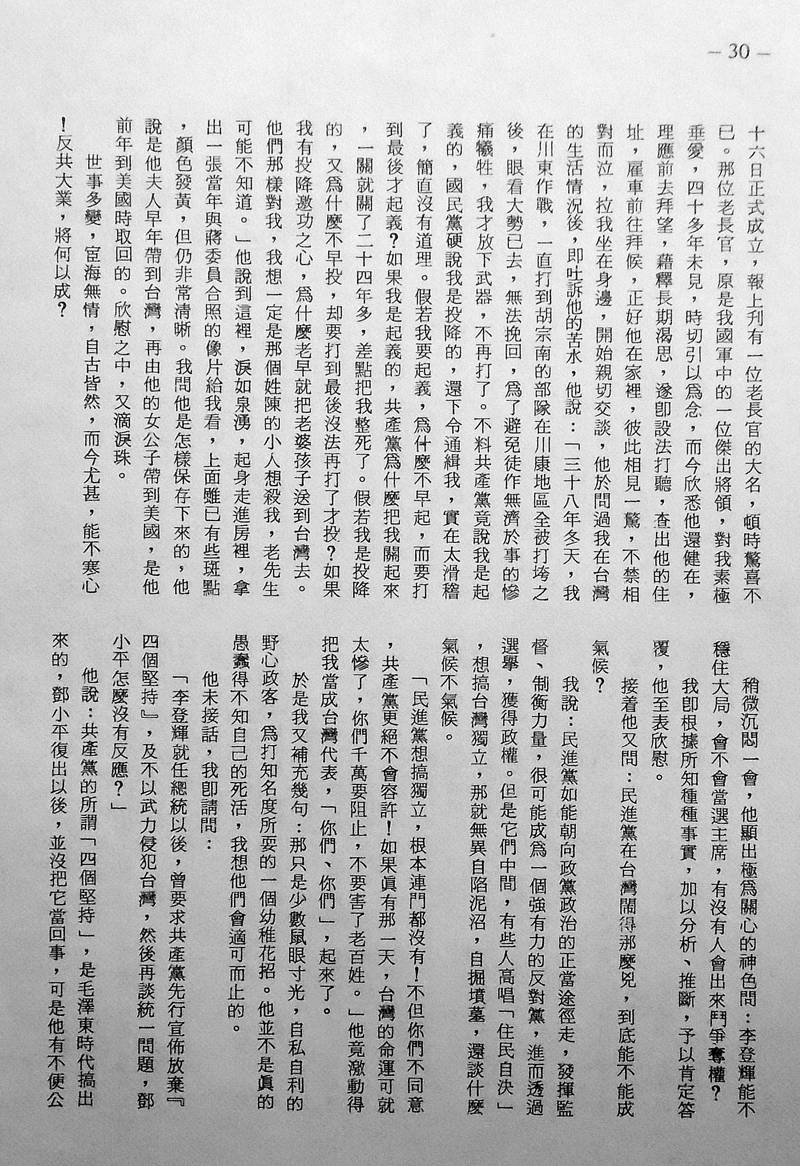 — 30 —
十六日正式成立，報上刋有一位老長官的大名，頓時驚喜不
已。那位老長官，原是我國軍中的一位傑出將領，對我素極
垂愛，四十多年未見，時切引以爲念，而今欣悉他還健在，
理應前去拜望，藉釋長期渴思，遂卽設法打聽，查出他的住
址，雇車前往拜候，正好他在家裡，彼此相見一驚，不禁相
對而泣，拉我坐在身邊，開始親切交談，他於問過我在台灣
的生活情況後，即吐訴他的苦水，他說：「三十八年冬天，我
在川東作戰，一直打到胡宗南的部隊在川康地區全被打垮之
後，眼看大勢已去，無法挽回，爲了避免徒作無濟於事的慘
痛犧牲，我才放下武器，不再打了。不料共產黨竟說我是起
義的，國民黨硬說我是投降的，還下令通緝我，實在太滑稽
了，簡直沒有道理。假若我要起義，爲什麼不早起，而要打
到最後才起義？如果我是起義的，共產黨爲什麼把我關起來
，一關就關了二十四年多，差點把我整死了。假若我是投降
的，又爲什麼不早投，却要打到最後沒法再打了才投？如果
我有投降邀功之心，爲什麼老早就把老婆孩子送到台灣去。
他們那樣對我，我想一定是那個姓陳的小人想殺我，老先生
可能不知道。」他說到這裡，淚如泉湧，起身走進房裡，拿
出一張當年與蔣委員合照的像片給我看，上面雖已有些斑點
，顏色發黃，但仍非常清晰。我問他是怎樣保存下來的，他
說是他夫人早年帶到台灣，再由他的女公子帶到美國，是他
前年到美國時取回的。欣慰之中，又滴淚珠。
世事多變，宦海無情，自古皆然，而今尤甚，能不寒心
！反共大業，將何以成？
稍微沉悶一會，他顯出極爲關心的神色問：李登輝能不
穩住大局，會不會當選主席，有沒有人會出來鬥爭奪權？
我卽根據所知種種事實，加以分析、推斷，予以肯定答
覆，他至表欣慰。
接着他又問：民進黨在台灣鬧得那麼兇，到底能不能成
氣候？
我說：民進黨如能朝向政黨政治的正當途徑走，發揮監
督、制衡力量，很可能成爲一個強有力的反對黨，進而透過
選舉，獲得政權。但是它們中間，有些人高唱「住民自決」
，想搞台灣獨立，那就無異自陷泥沼，自掘墳墓，還談什麼
氣候不氣候。
「民進黨想搞獨立，根本連門都沒有！不但你們不同意
，共產黨更絕不會容許！如果眞有那一天，台灣的命運可就
太慘了，你們千萬要阻止，不要害了老百姓。」他竟激動得
把我當成台灣代表，「你們、你們」，起來了。
於是我又補充幾句：那只是少數鼠眼寸光，自私自利的
野心政客，爲打知名度所耍的一個幼稚花招。他並不是眞的
愚蠢得不知自己的死活，我想他們會適可而止的。
他未接話，我卽請問：
「李登輝就任總統以後，曾要求共產黨先行宣佈放棄『
四個堅持』，及不以武力侵犯台灣，然後再談統一問題，鄧
小平怎麼沒有反應？」
他說：共產黨的所謂「四個堅持」，是毛澤東時代搞出
來的，鄧小平復出以後，並沒把它當回事，可是他有不便公